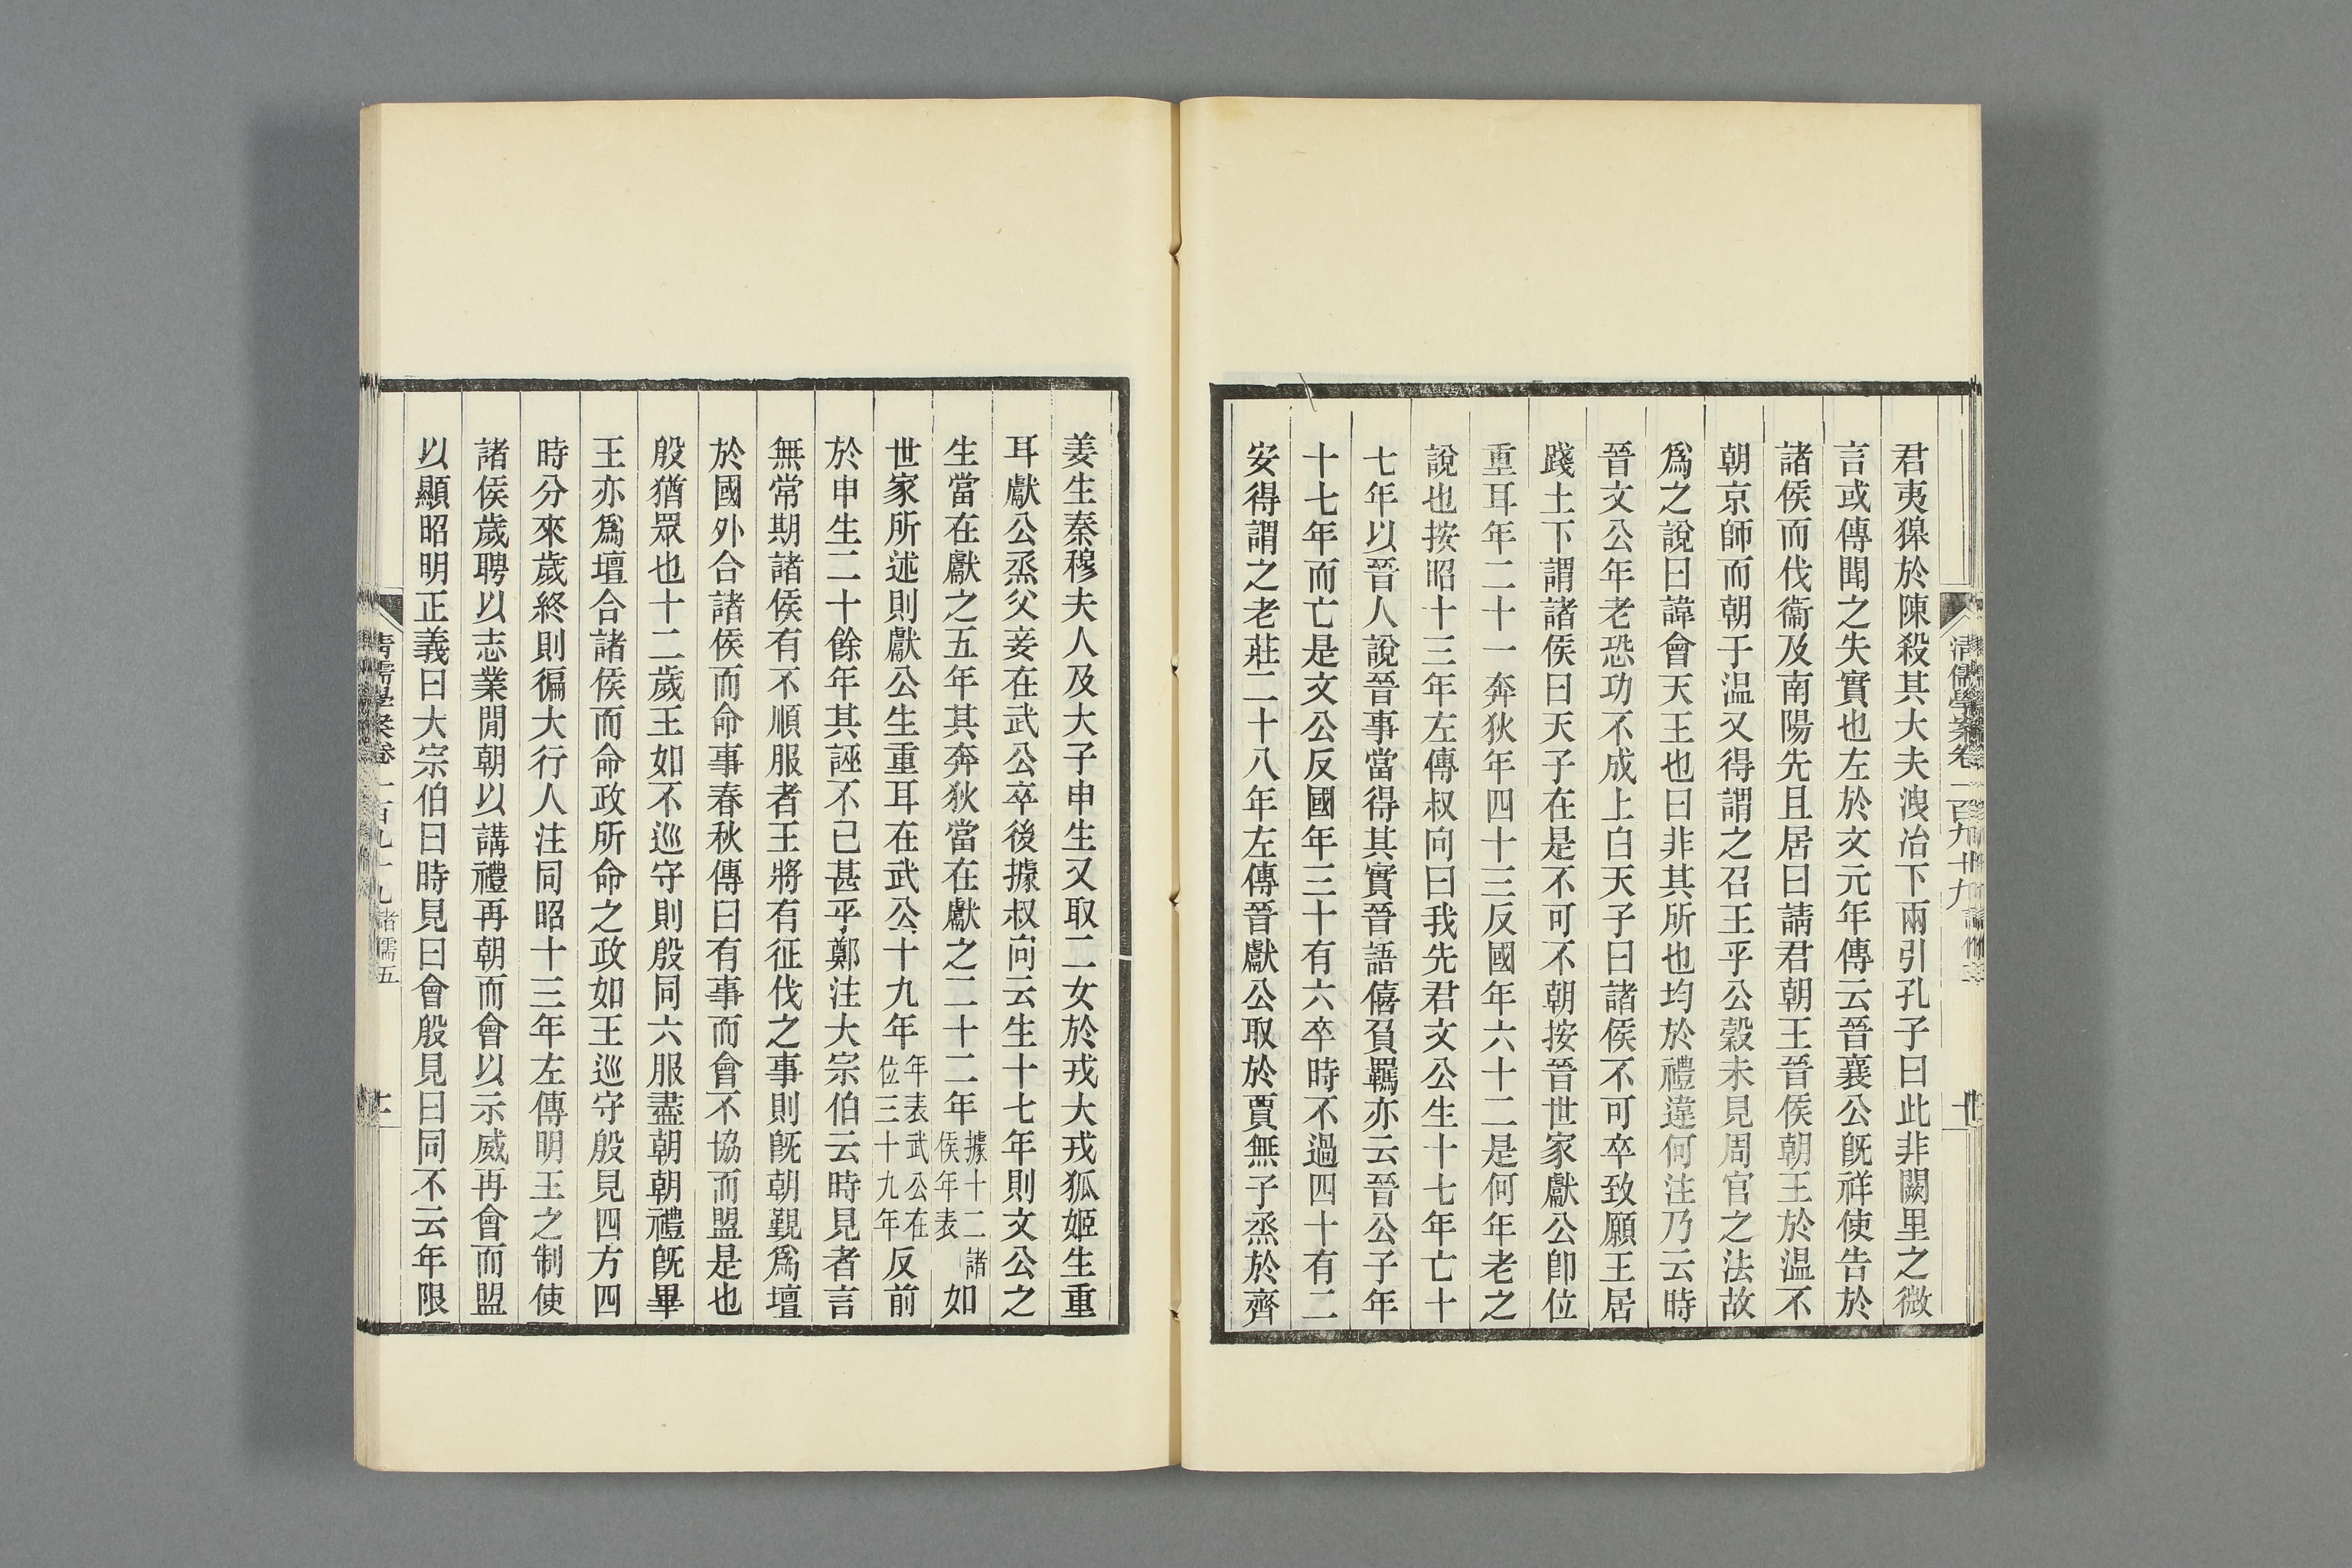 君夷獋於陳殺其大夫洩冶下兩引孔子曰此非闕里之微
言或傳聞之失實也左於文元年傳云晉襄公旣祥使告於
諸侯而伐衞及南陽先且居曰請君朝王晉侯朝王於温不
朝京師而朝于温又得謂之召王乎公穀未見周官之法故
爲之說曰諱會天王也曰非其所也均於禮違何注乃云時
晉文公年老恐功不成上白天子曰諸侯不可卒致願王居
踐土下謂諸侯曰天子在是不可不朝按晉世家獻公卽位
重耳年二十一奔狄年四十三反國年六十二是何年老之
說也按昭十三年左傳叔向曰我先君文公生十七年亡十
七年以晉人說晉事當得其實晉語僖負羈亦云晉公子年
十七年而亡是文公反國年三十有六卒時不過四十有二
安得謂之老莊二十八年左傳晉獻公取於賈無子烝於齊
姜生秦穆夫人及大子申生又取二女於戎大戎狐姬生重
耳獻公烝父妾在武公卒後據叔向云生十七年則文公之
生當在獻之五年其奔狄當在獻之二十二年據十二諸侯年表如
世家所述則獻公生重耳在武公十九年年表武公在位三十九年反前
於申生二十餘年其誣不已甚乎鄭注大宗伯云時見者言
無常期諸侯有不順服者王將有征伐之事則旣朝覲爲壇
於國外合諸侯而命事春秋傳曰有事而會不協而盟是也
殷猶眾也十二歲王如不巡守則殷同六服盡朝朝禮旣畢
王亦爲壇合諸侯而命政所命之政如王巡守殷見四方四
時分來歲終則徧大行人注同昭十三年左傳明王之制使
諸侯歲聘以志業閒朝以講禮再朝而會以示威再會而盟
以顯昭明正義曰大宗伯曰時見曰會殷見曰同不云年限
清儒學案卷一百九十九 諸儒五